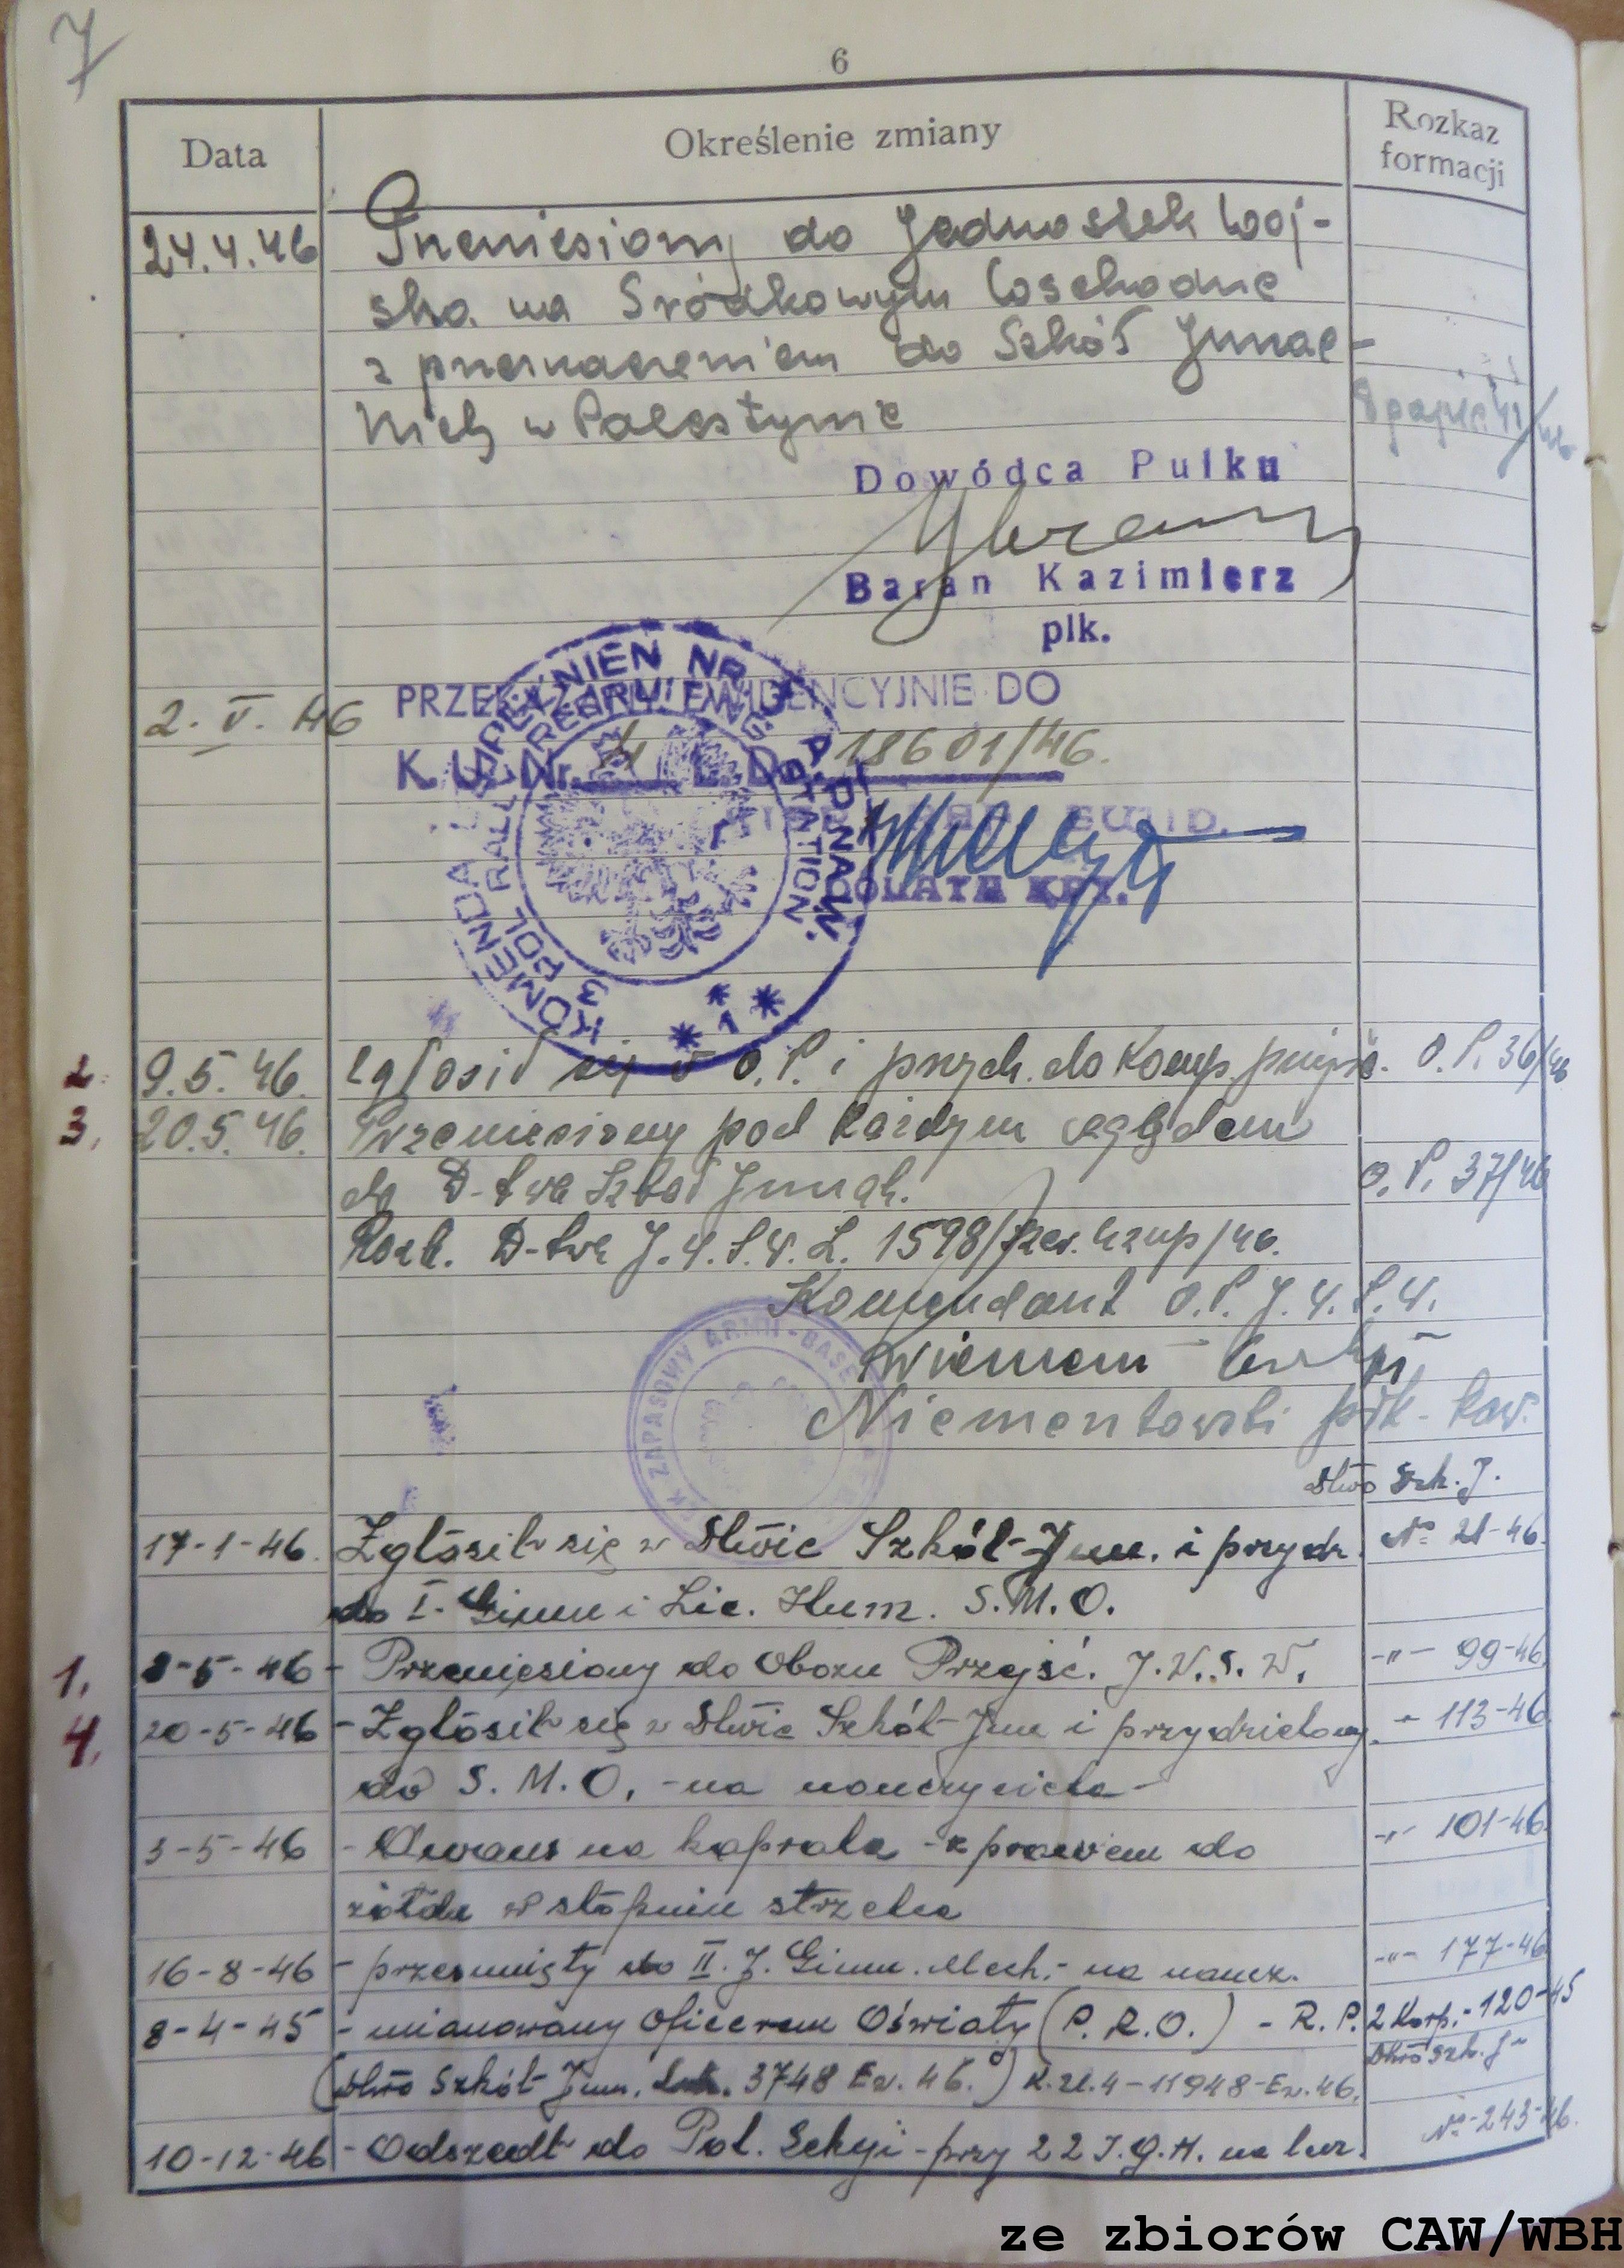 7
6
Data
Określenie zmiany
Rozkaz
formacji
24.4.46
Przeniesiony do Jednostek Woj-
ska na Sródkowym Wschodzie
z przeznaczeniem do Szkół Junac-
kich w Palestynie
Dowódca Pułku
Baran Kazimierz
płk.
2. V. 46
PRZEKAZANY EWIDENCYJNIE DO
K. U. Nr. 4 L. D. 18601/46.
KOMENDA UZUPEŁNIEŃ NR 3 A.P. NA W.
3 POL RALL RECRUITING STATION
* 1 * *
2. 9.5.46. Zgłosił się w O.P. i przydz. do Komp. przejść. O.P. 36/46
3. 20.5.46. Przeniesiony pod każdym względem
do D-twa Szkół Junak. O.P. 37/46
Rozk. D-twa J.W.S.W. L. 1598/ /46.
Komendant O.P. J.W.S.W.
Niementowski płk. kaw.
ZAPASOWY ARMII - BASE
Dtwo Szk. J.
17-1-46. Zgłosił się w Dtwie Szkół Jun. i przydz. No 21-46.
do I. Gimn i Lic. Hum. S.M.O.
1. 8-5-46 - Przeniesiony do Obozu Przejść. J.W.S.W. -"- 99-46.
4. 20-5-46 - Zgłosił się w Dtwie Szkół Jun i przydzielony - 113-46.
do S.M.O. - na nauczyciela -
3-5-46 - Awans na kaprala - z prawem do -"- 101-46.
żołdu w stopniu strzelca
16-8-46 - przesunięty do II. J. Gimn. Mech. - na naucz. -"- 177-46
8-4-45 - mianowany oficerem Oświaty (P.R.O.) - R.P. 2 Korp. - 120-45
(Dtwo Szkół Jun. 3748 Ew. 46.) K.U.4-11948-Ew.46. Dtwo Szk. J-
10-12-46 - Odszedł do Pol. Sekcji - przy 22 I.G.H. na kur. No-243-46.
ze zbiorów CAW/WBH